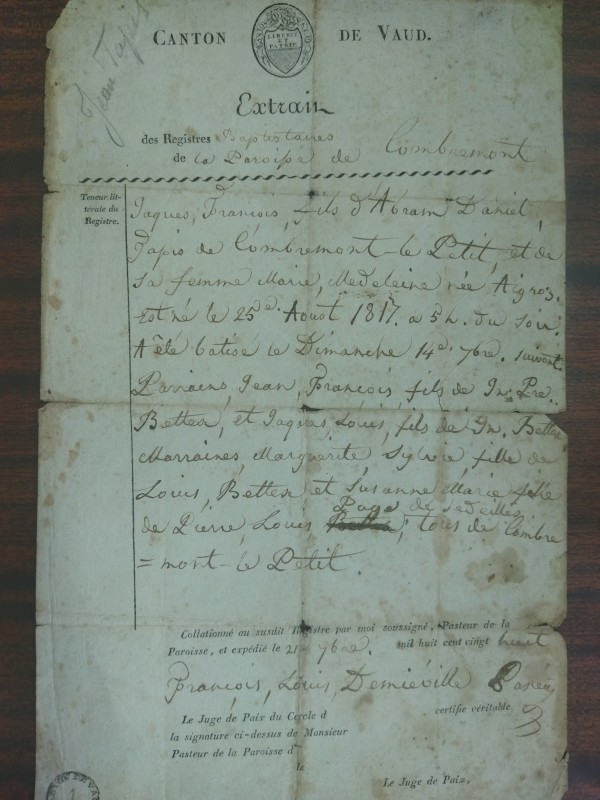 Jean Tapis
CANTON DE VAUD.
LIBERTÉ
ET
PATRIE
Extrait
des Registres Baptistaires
de la Paroisse de Combremont
Teneur lit-
térale du
Registre.
Jaques, François, fils d'Abram Daniel,
Tapis de Combremont-le Petit, et de
sa femme Marie, Medeleine née Aigroz.
est né le 25e. Aoust 1817. a 5h. du soir.
A été batisé le Dimanche 14e. 7bre. suivant.
Parrains, Jean, François, fils de Jn. Pre.
Bettex, et Jaques, Louis, fils de Jn. Bettex
Marraines, Marguerite, Sylvie fille de
Louis, Bettex et Susanne Marie fille
de Pierre, Louis de Sedeilles, tous de Combre
=mont-le Petit.
Collationné au susdit Registre par moi soussigné, Pasteur de la
Paroisse, et expédié le 21e 7bre. mil huit cent vingt huit
François, Louis, Demiéville Pasteur
Le Juge de Paix du Cercle d certifie véritable
la signature ci-dessus de Monsieur
Pasteur de la Paroisse d
le
Le Juge de Paix,